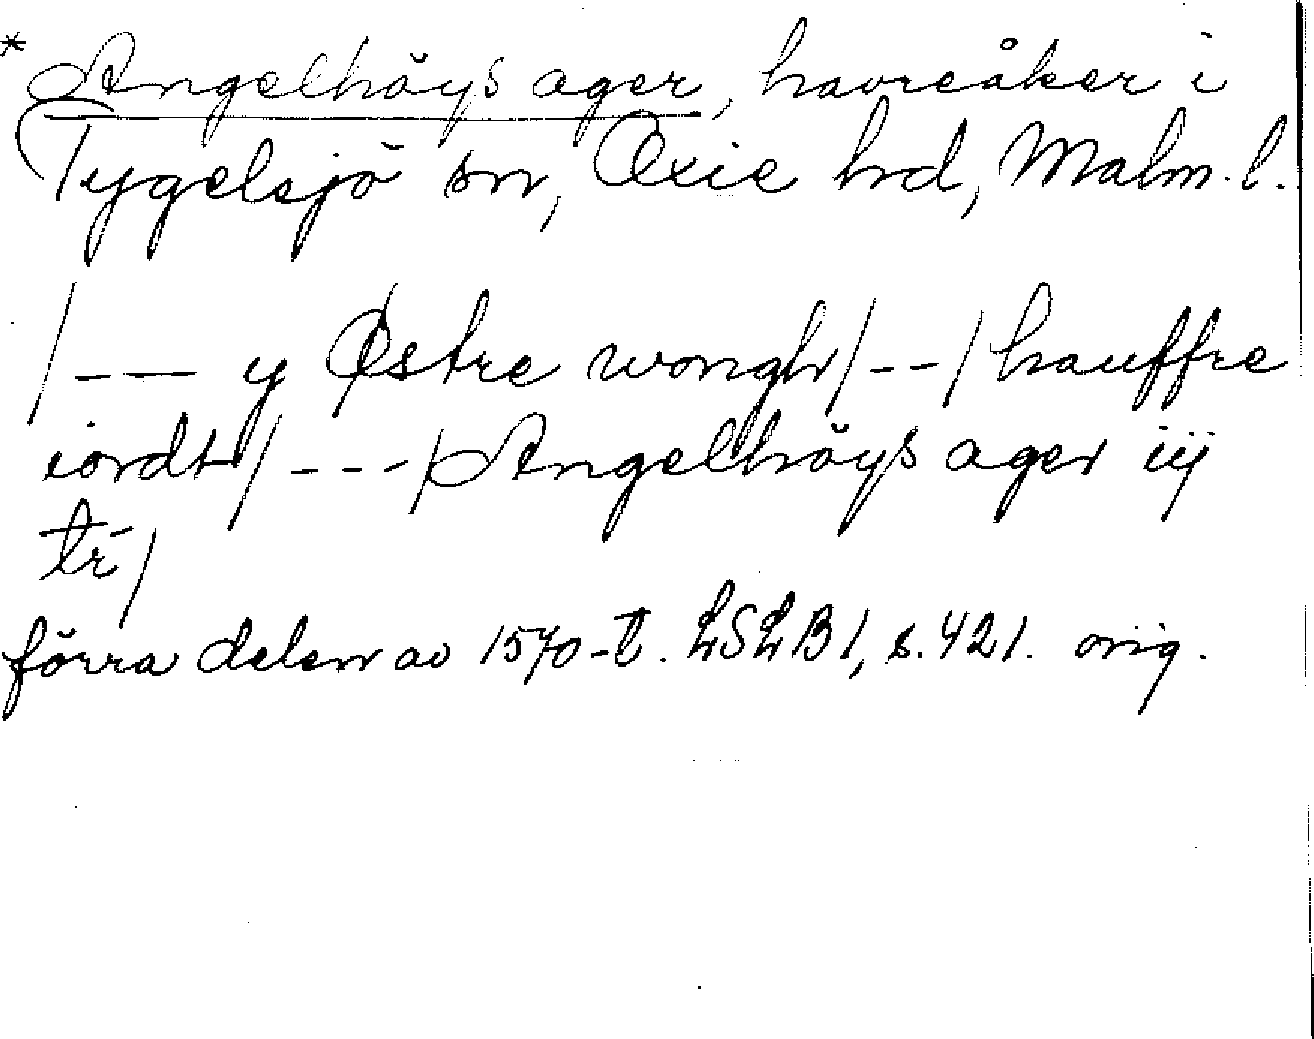 * Angelhöys ager, havreåker i
Tygelsjö sn, Oxie hd, Malm. l.
/ - — y Østre wongh / - - / hauffre
iordt / - - - / Angelhöys ager iij
tr /
förra delen av 1570-t. LSLB 1, s. 421. orig.